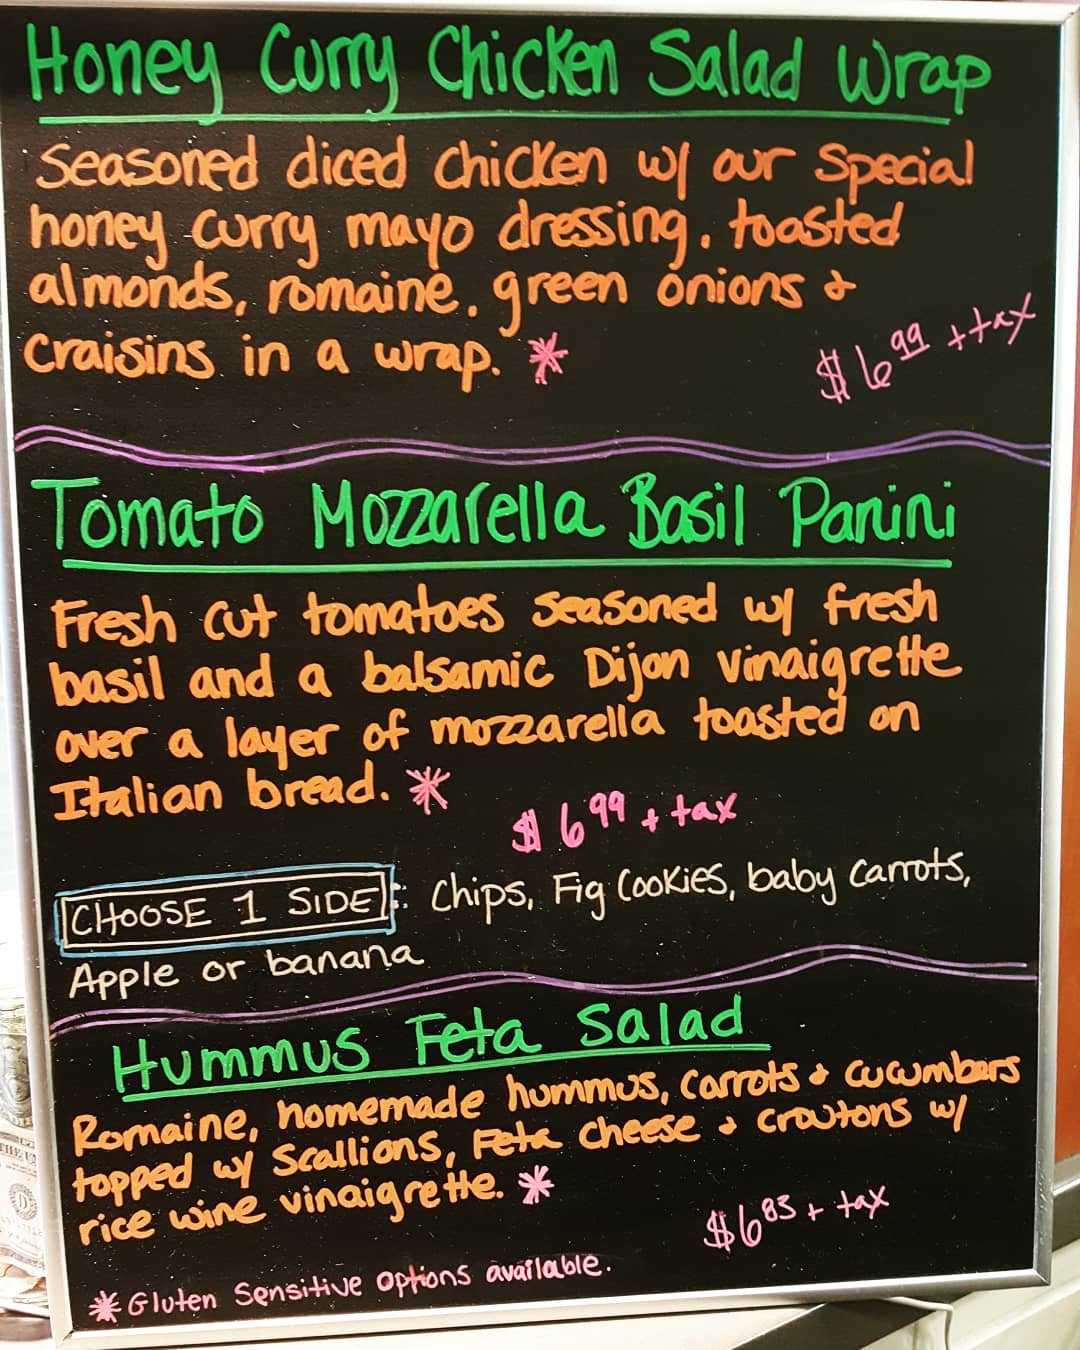 Honey Curry Chicken Salad Wrap
Seasoned diced chicken w/ our Special
honey curry mayo dressing, toasted
almonds, romaine, green onions &
craisins in a wrap. *
$6.99 + tax
Tomato Mozzarella Basil Panini
Fresh cut tomatoes seasoned w/ fresh
basil and a balsamic Dijon vinaigrette
over a layer of mozzarella toasted on
Italian bread. *
$6.99 + tax
CHOOSE 1 SIDE: Chips, Fig Cookies, baby carrots,
Apple or banana
Hummus Feta Salad
Romaine, homemade hummus, carrots & cucumbers
topped w/ Scallions, Feta cheese & croutons w/
rice wine vinaigrette. *
$6.83 + tax
* Gluten Sensitive options available.